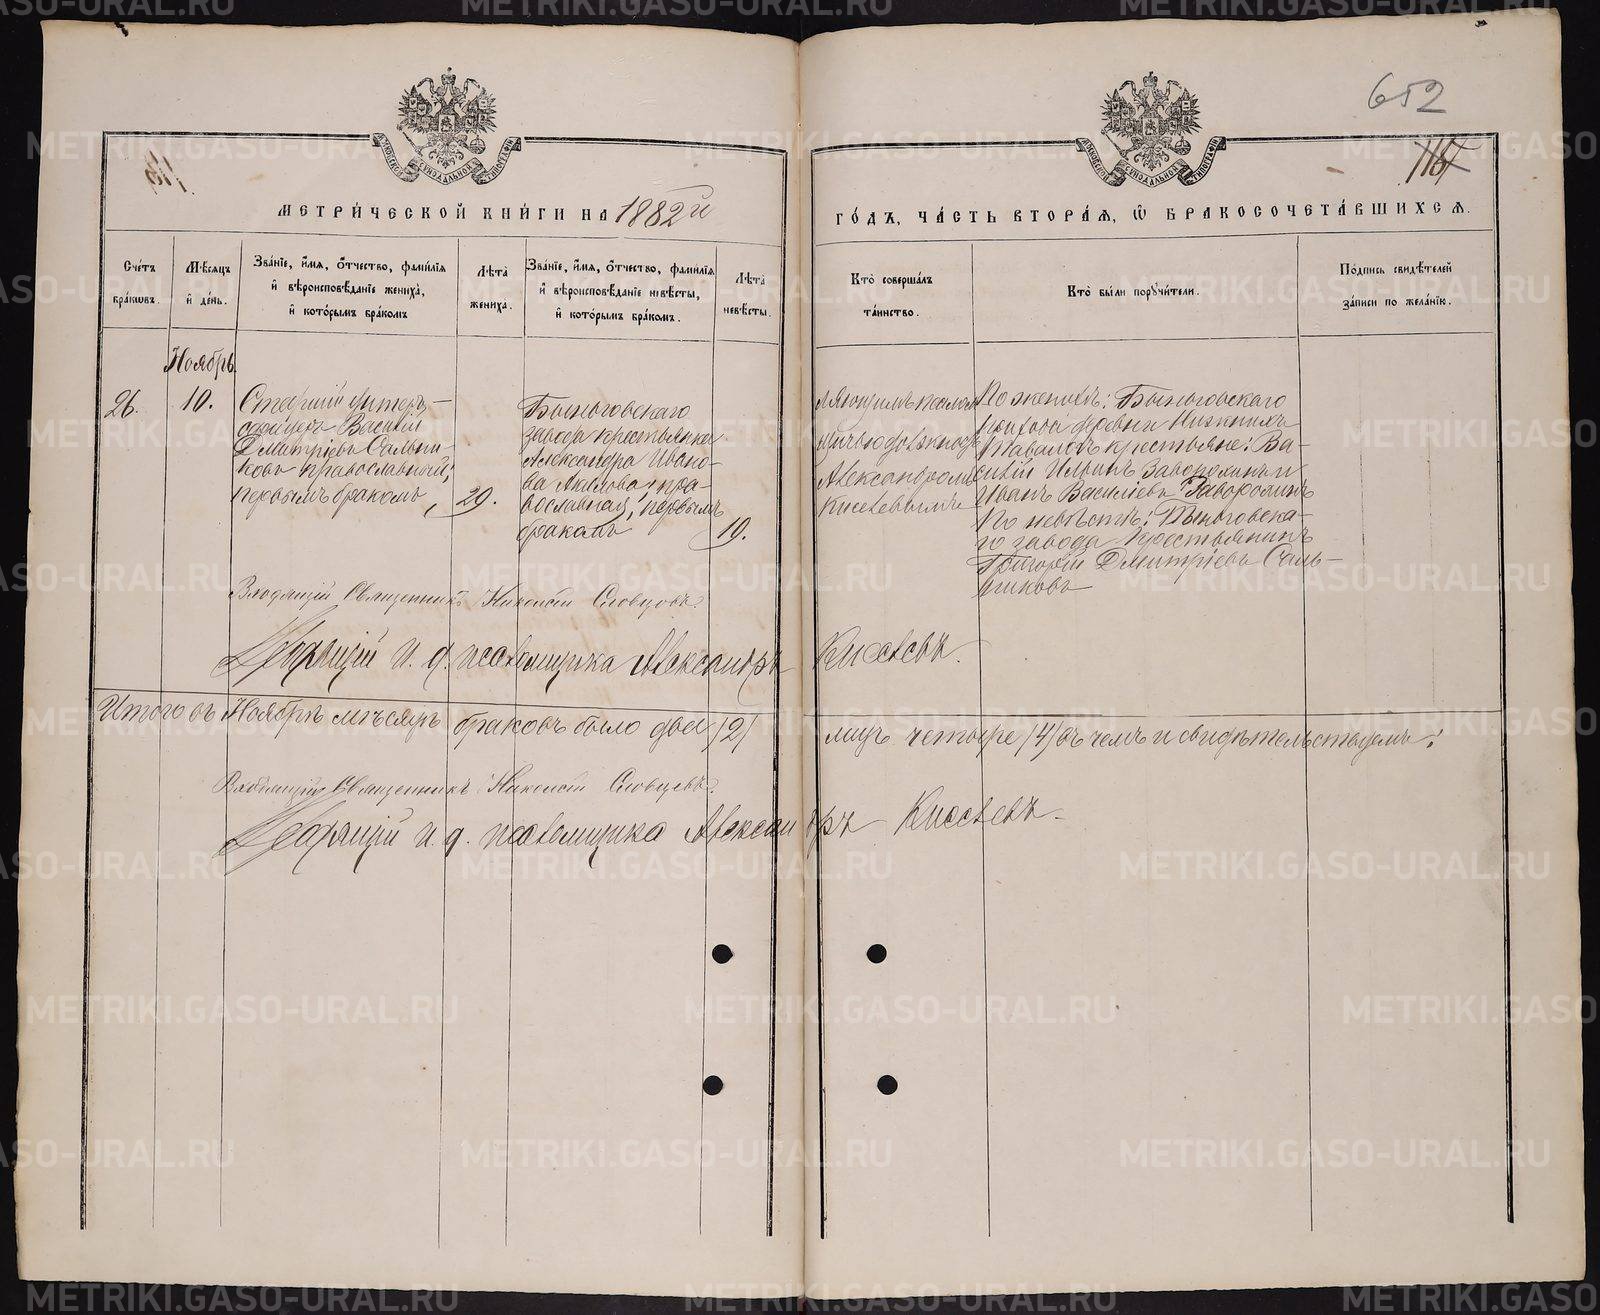 652
115
МЕТРИ́ЧЕСКОЙ КНИ́ГИ НА 1882й
ГО́ДЪ, ЧА́СТЬ ВТОРА́Я, Ѿ БРАКОСОЧЕТА́ВШИХСЯ.
Сче́тъ бра́кѡвъ.
Мѣ́сяцъ и҆ де́нь.
Зва́нїе, и҆́мя, ѻ҆́тчество, фами́лїя
и҆ вѣроисповѣ́данїе жениха̀,
и҆ кото́рымъ бра́комъ
Лѣ́та жениха̀.
Зва́нїе, и҆́мя, ѻ҆́тчество, фами́лїя
и҆ вѣроисповѣ́данїе невѣ́сты,
и҆ кото́рымъ бра́комъ.
Лѣ́та невѣ́сты.
Кто̀ соверша́лъ
та́инство.
Кто̀ бы́ли порꙋчи́тели.
По́дпись свидѣ́телей
за́писи по жела́нїю.
Ноябрь
26.
10.
Старшій унтеръ-
офицеръ Василій
Дмитріевъ Сальни-
ковъ православный,
первымъ бракомъ,
29.
Быньговскаго
завода крестьянка
Александра Ивано-
ва Акилова, пра-
вославная, первымъ
бракомъ
19.
Александромъ
Киселевымъ
По женихѣ: Быньговскаго
прихода деревни Нижнихъ
Тавологъ крестьяне: Ва-
силій Ильинъ Заворохинъ и
Иванъ Василіевъ Заворохинъ
По невѣстѣ: Быньговска-
го завода крестьянинъ
Григорій Дмитріевъ Саль-
никовъ
Священникъ Николай Словцовъ.
и. д. псаломщика Александръ Киселевъ.
Итого въ Ноябрѣ мѣсяцѣ браковъ было два /2/ лицъ четыре /4/ въ чемъ и свидѣтельствуемъ:
Священникъ Николай Словцовъ.
и. д. псаломщика Александръ Киселевъ.
METRIKI.GASO-URAL.RU